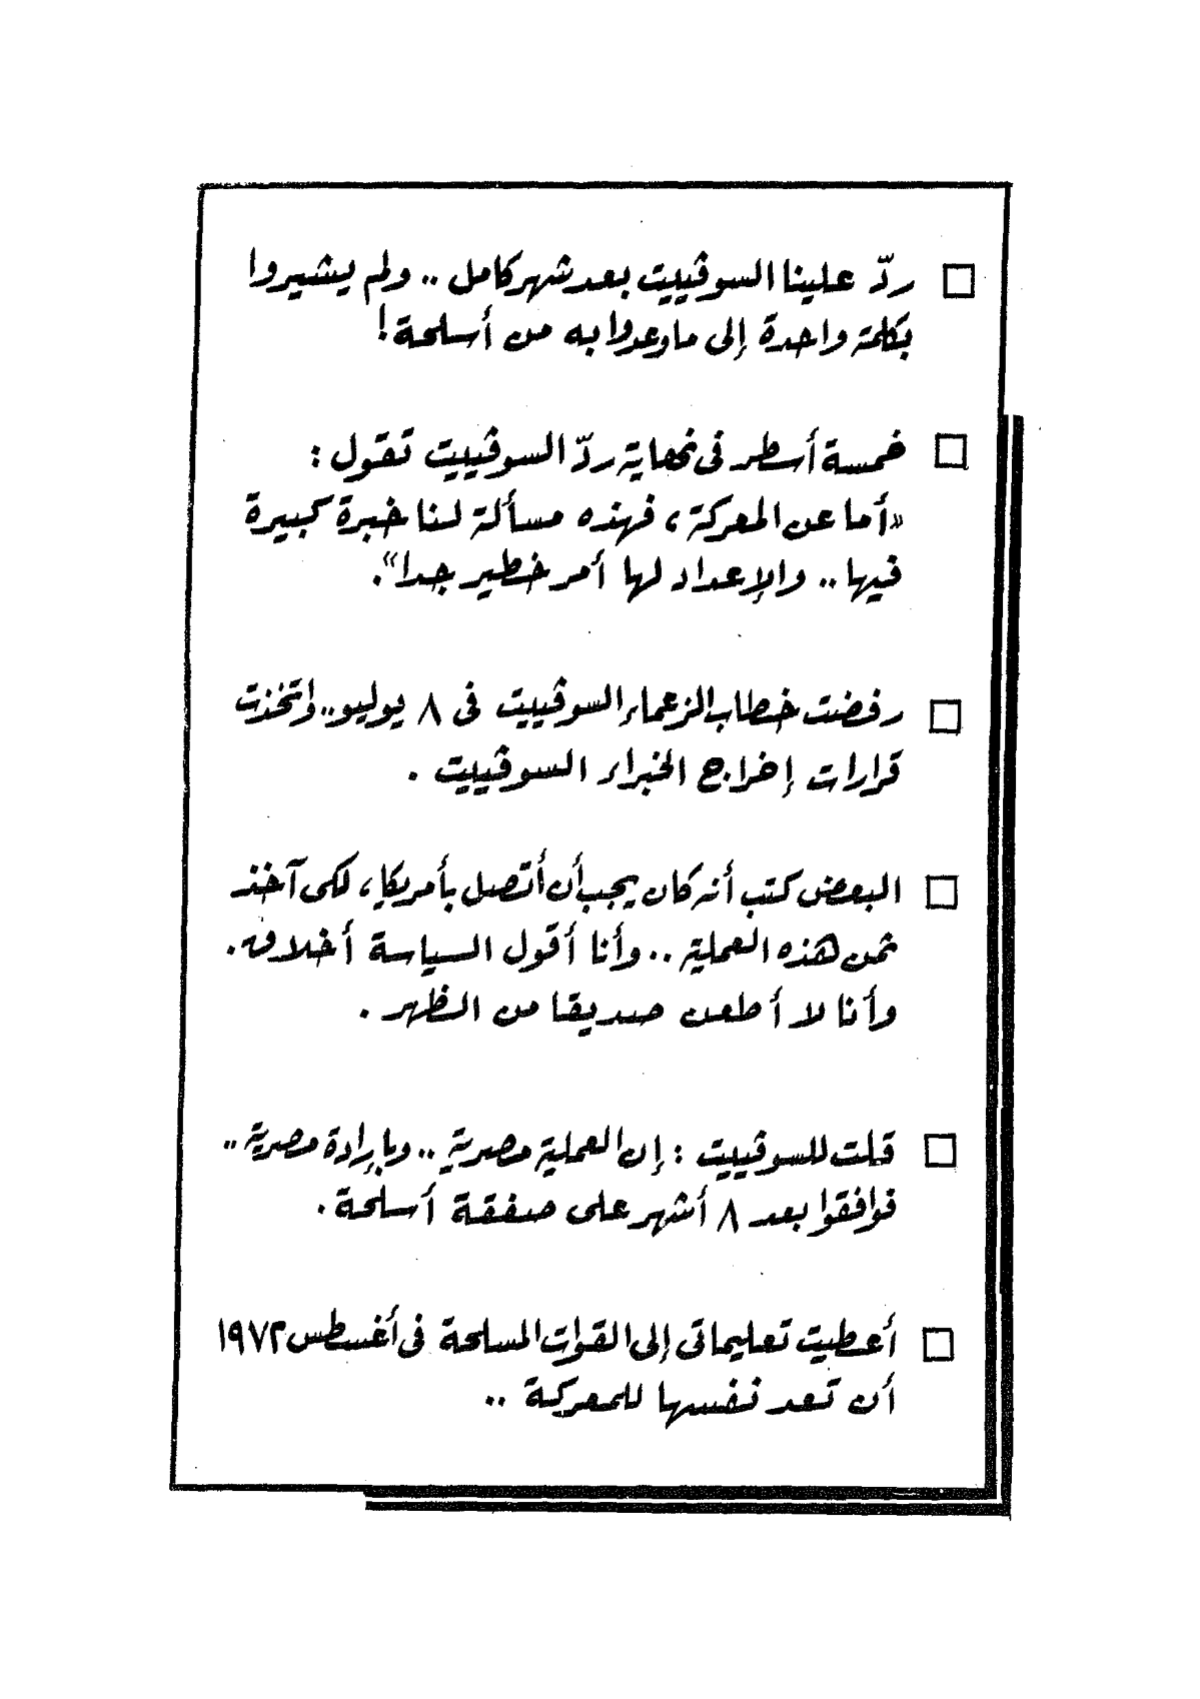 □ ردّ علينا السوڤييت بعد شهر كامل .. ولم يشيروا
بكلمة واحدة إلى ما وعدوا به من أسلحة !
□ خمسة أسطر فى نهاية ردّ السوڤييت تقول :
«أما عن المعركة ، فهذه مسألة لنا خبرة كبيرة
فيها .. والإعداد لها أمر خطير جدا» .
□ رفضت خطاب الزعماء السوڤييت فى ٨ يوليو .. واتخذت
قرارات إخراج الخبراء السوڤييت .
□ البعض كتب أنه كان يجب أن أتصل بأمريكا ، لكى آخذ
ثمن هذه العملية .. وأنا أقول السياسة أخلاق .
وأنا لا أطعن صديقا من الظهر .
□ قلت للسوڤييت : إن العملية مصرية .. وبإرادة مصرية ..
فوافقوا بعد ٨ أشهر على صفقة أسلحة .
□ أعطيت تعليماتى إلى القوات المسلحة فى أغسطس ١٩٧٢
أن تعد نفسها للمعركة ..